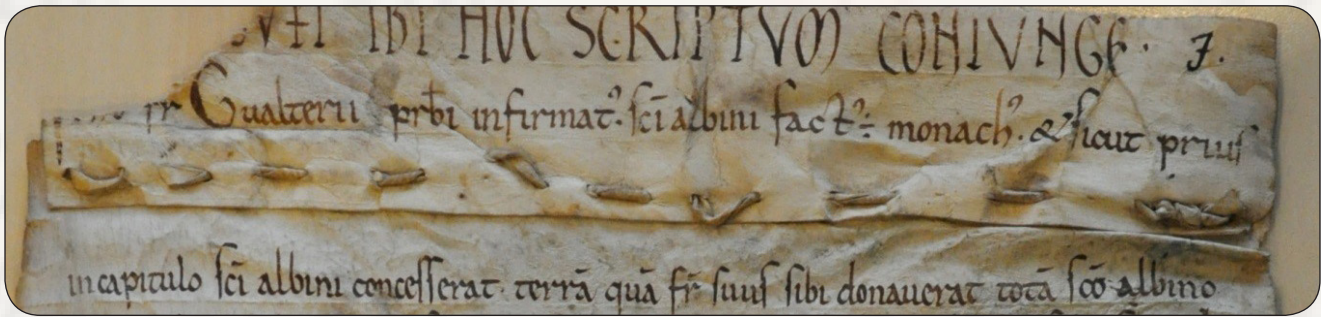 IBI HOC SCRIPTVM CONIVNGE. 7.
fr Gualterii prƀi infirmatꝰ. sc̄i albini factꝰ ÷ monachꝰ. & sicut prius
in capitulo sc̄i albini concesserat. terrā quā fr̄ suus sibi donauerat totā sc̄ō albino